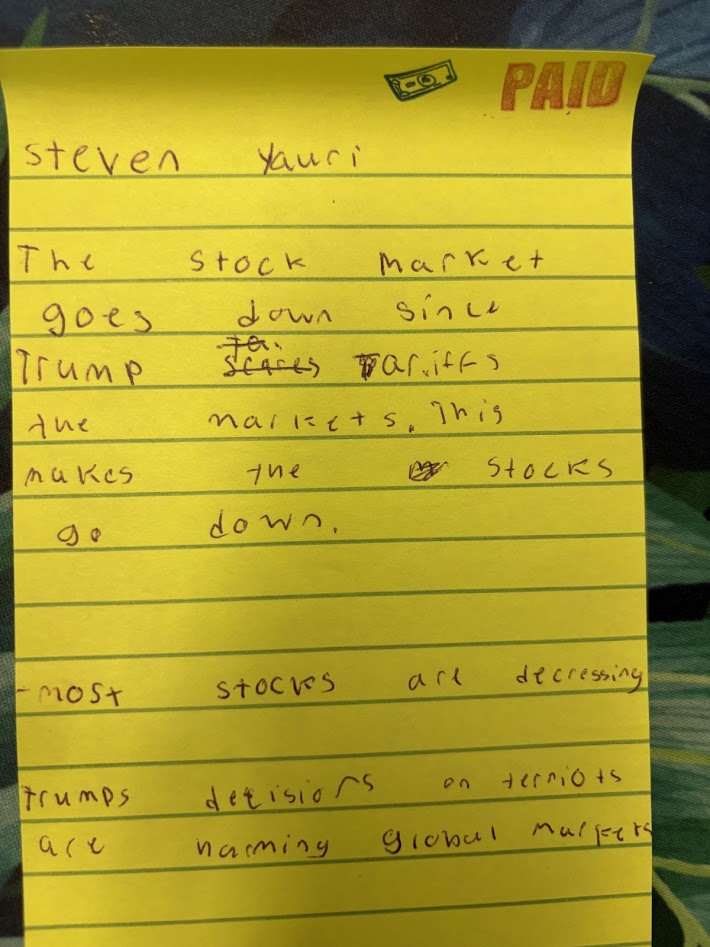 PAID
steven Yauri
The stock market
goes down since
Trump scares Tariffs
the markets. This
makes the stocks
go down.
-most stocks are decressing
trumps decisions on terriots
are harming global markets